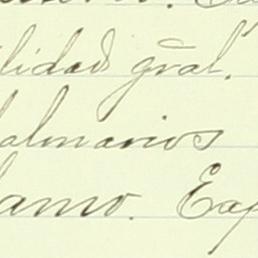 ilidad grāl.
almarios
amo. Exp